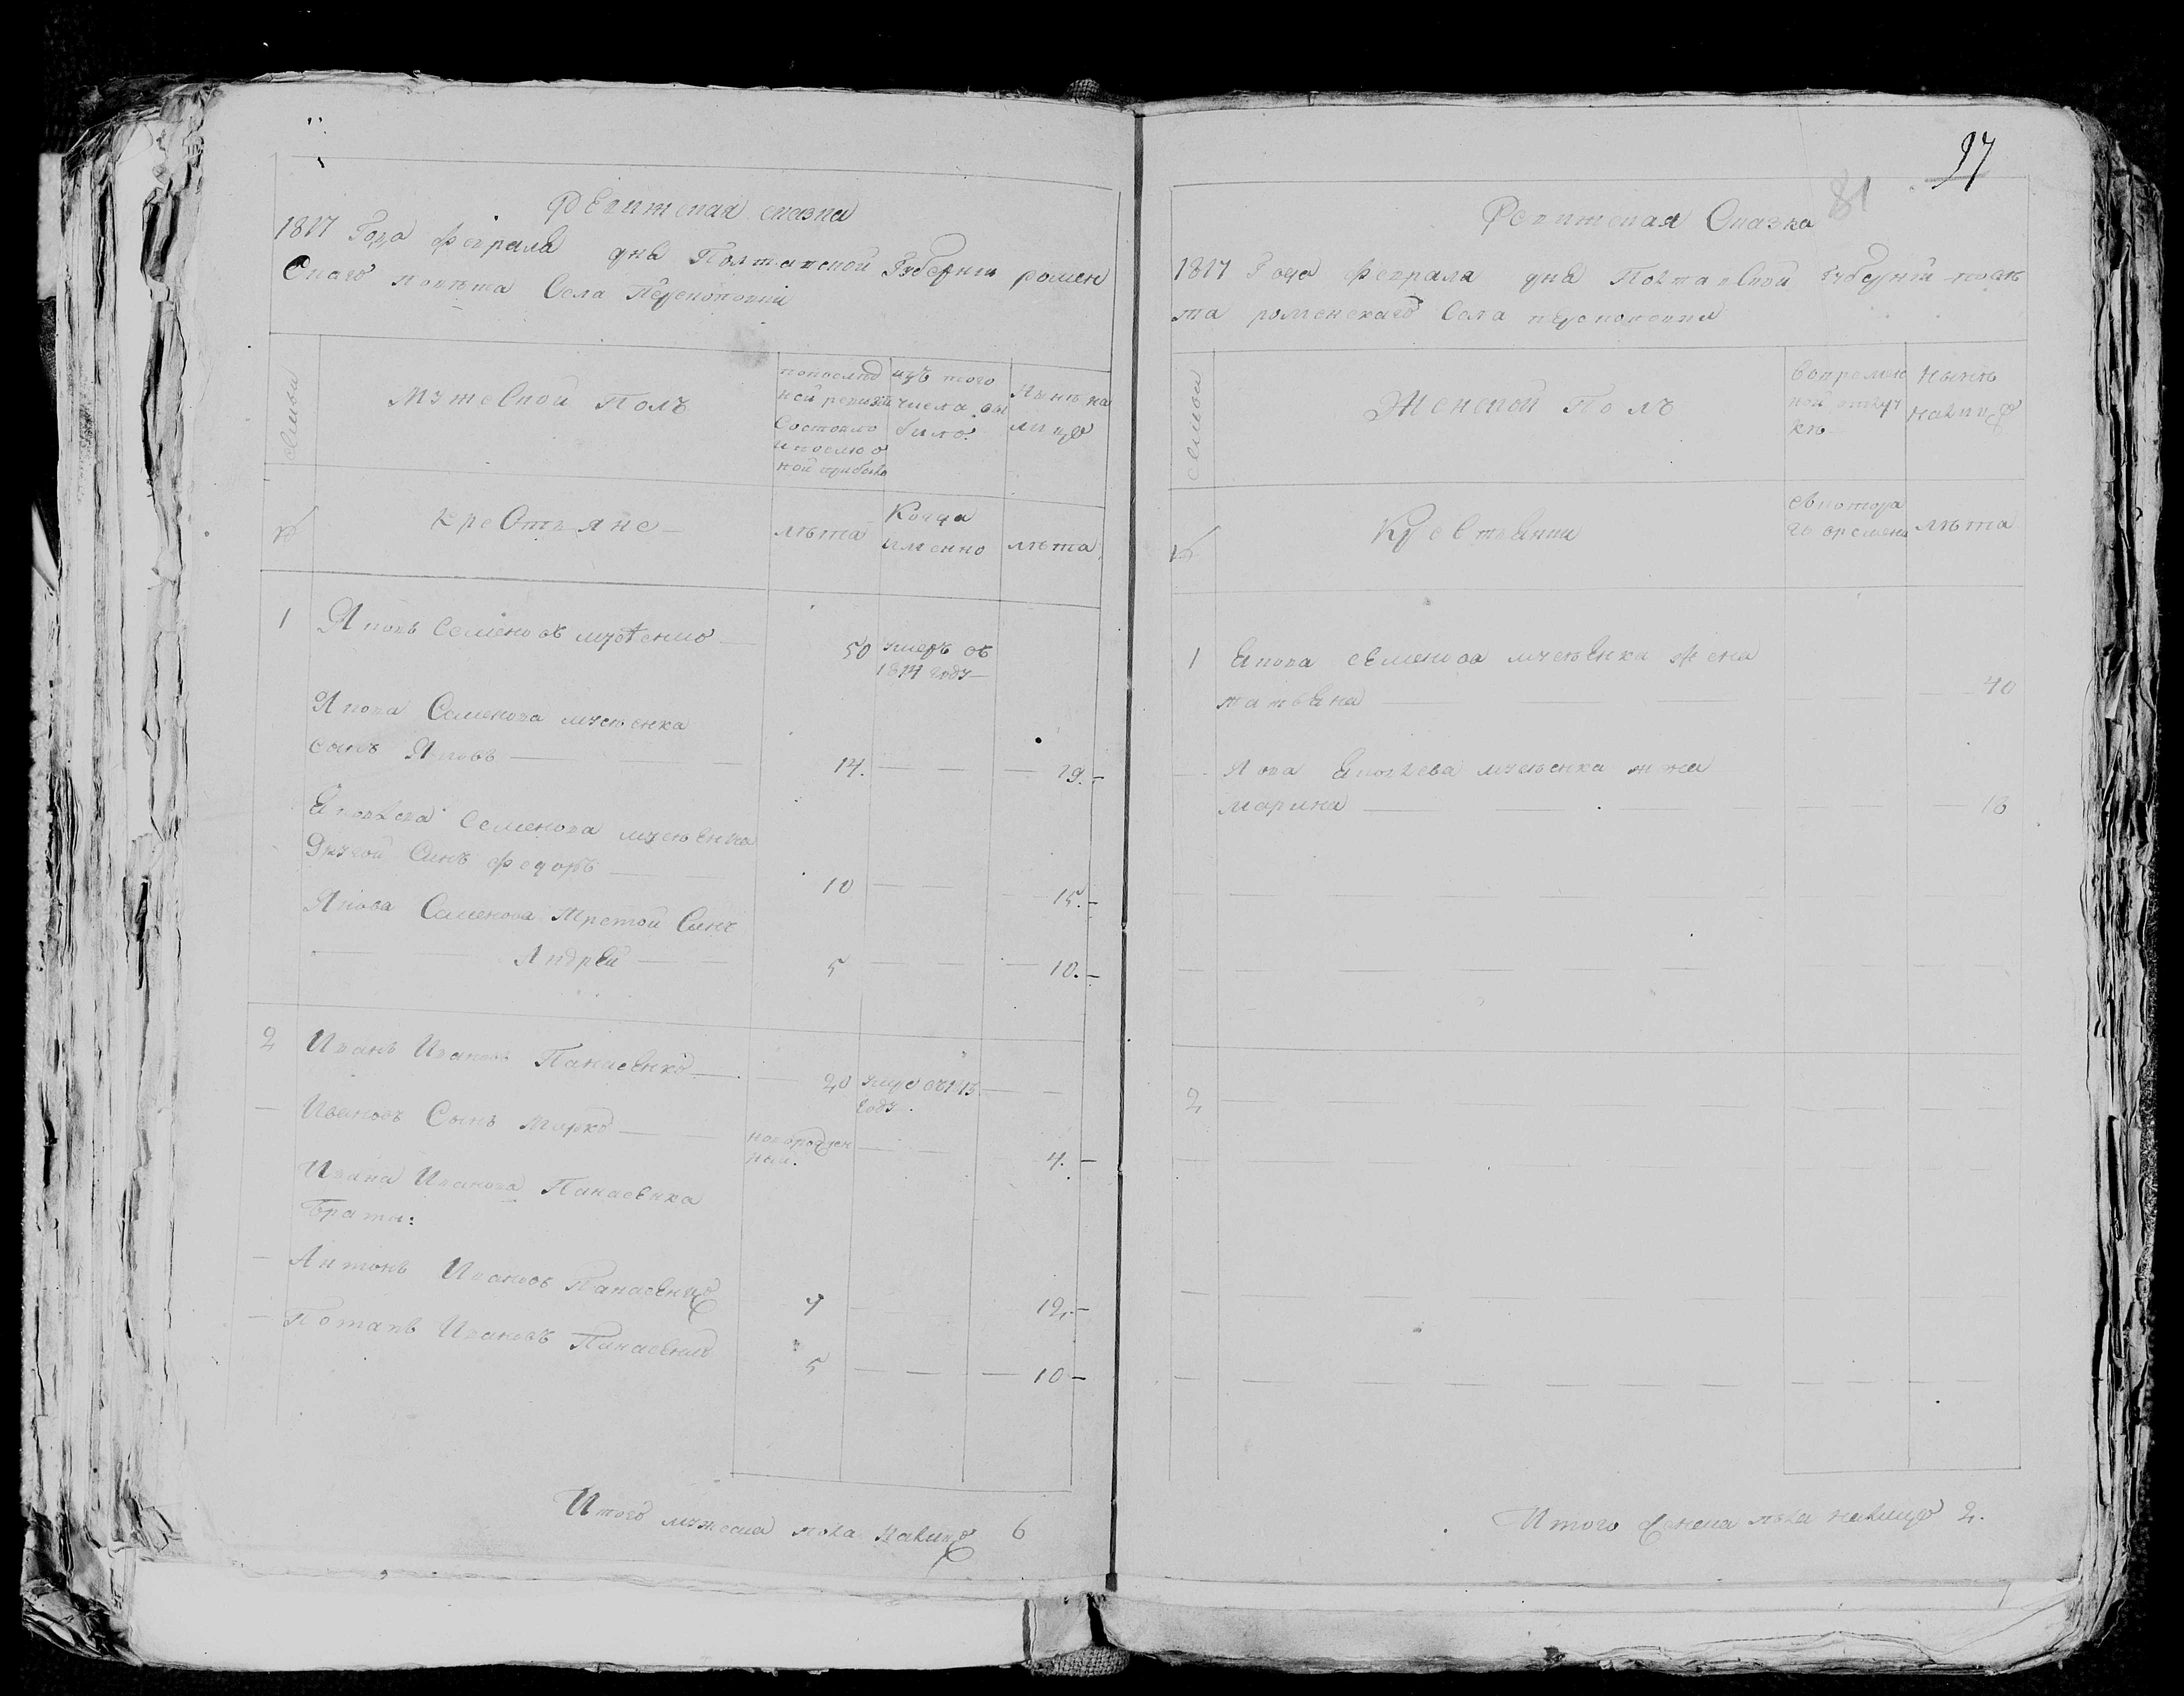 Ревижская сказка
1817 Года Февраля дня Полтавской Губернии ромен
Скаго повѣта Села Перекоповки
семьи
Мужеской Полъ
попослѣд
ней ревизіи
Состояло
и послѣ о
ной прибыло
изъ того
числа вы
было
Нынѣ на
лицо
№
крестьяне
лѣта
Когда
именно
лѣта
1 Яковъ Семеновъ 50 умеръ въ
1814 году
Якова Семенова
сынъ Яковъ 14. 19.
Семенова
Другой Синъ Федоръ 10 15.
Якова Семенова Третой Синъ
Андрей 5 10.
2 Иванъ Ивановъ Панасенко 20 умре в 1813
году.
Ивановъ Сынъ Марко новорожден
ный. 4.
Ивана Иванова Панасенка
Браты:
Антонъ Ивановъ Панасенко 7 12.
Потапъ Ивановъ Панасенко 5 10
Итого мужеска пола налицо 6
97
81
Ревижская Сказка
1817 Года Февраля дня Полтавской Губерніи повѣ
та роменскаго Села перекоповки
семьи
Женской Полъ
вовремен
ной отлуч
кѣ
Нынѣ
налицо
№
Крестьянки
Съ котора
го времени
лѣта
1 Якова Семенова жена
татьяна 40
Якова Яковлева жена
марина 18
2
Итого женска пола налицо 2.